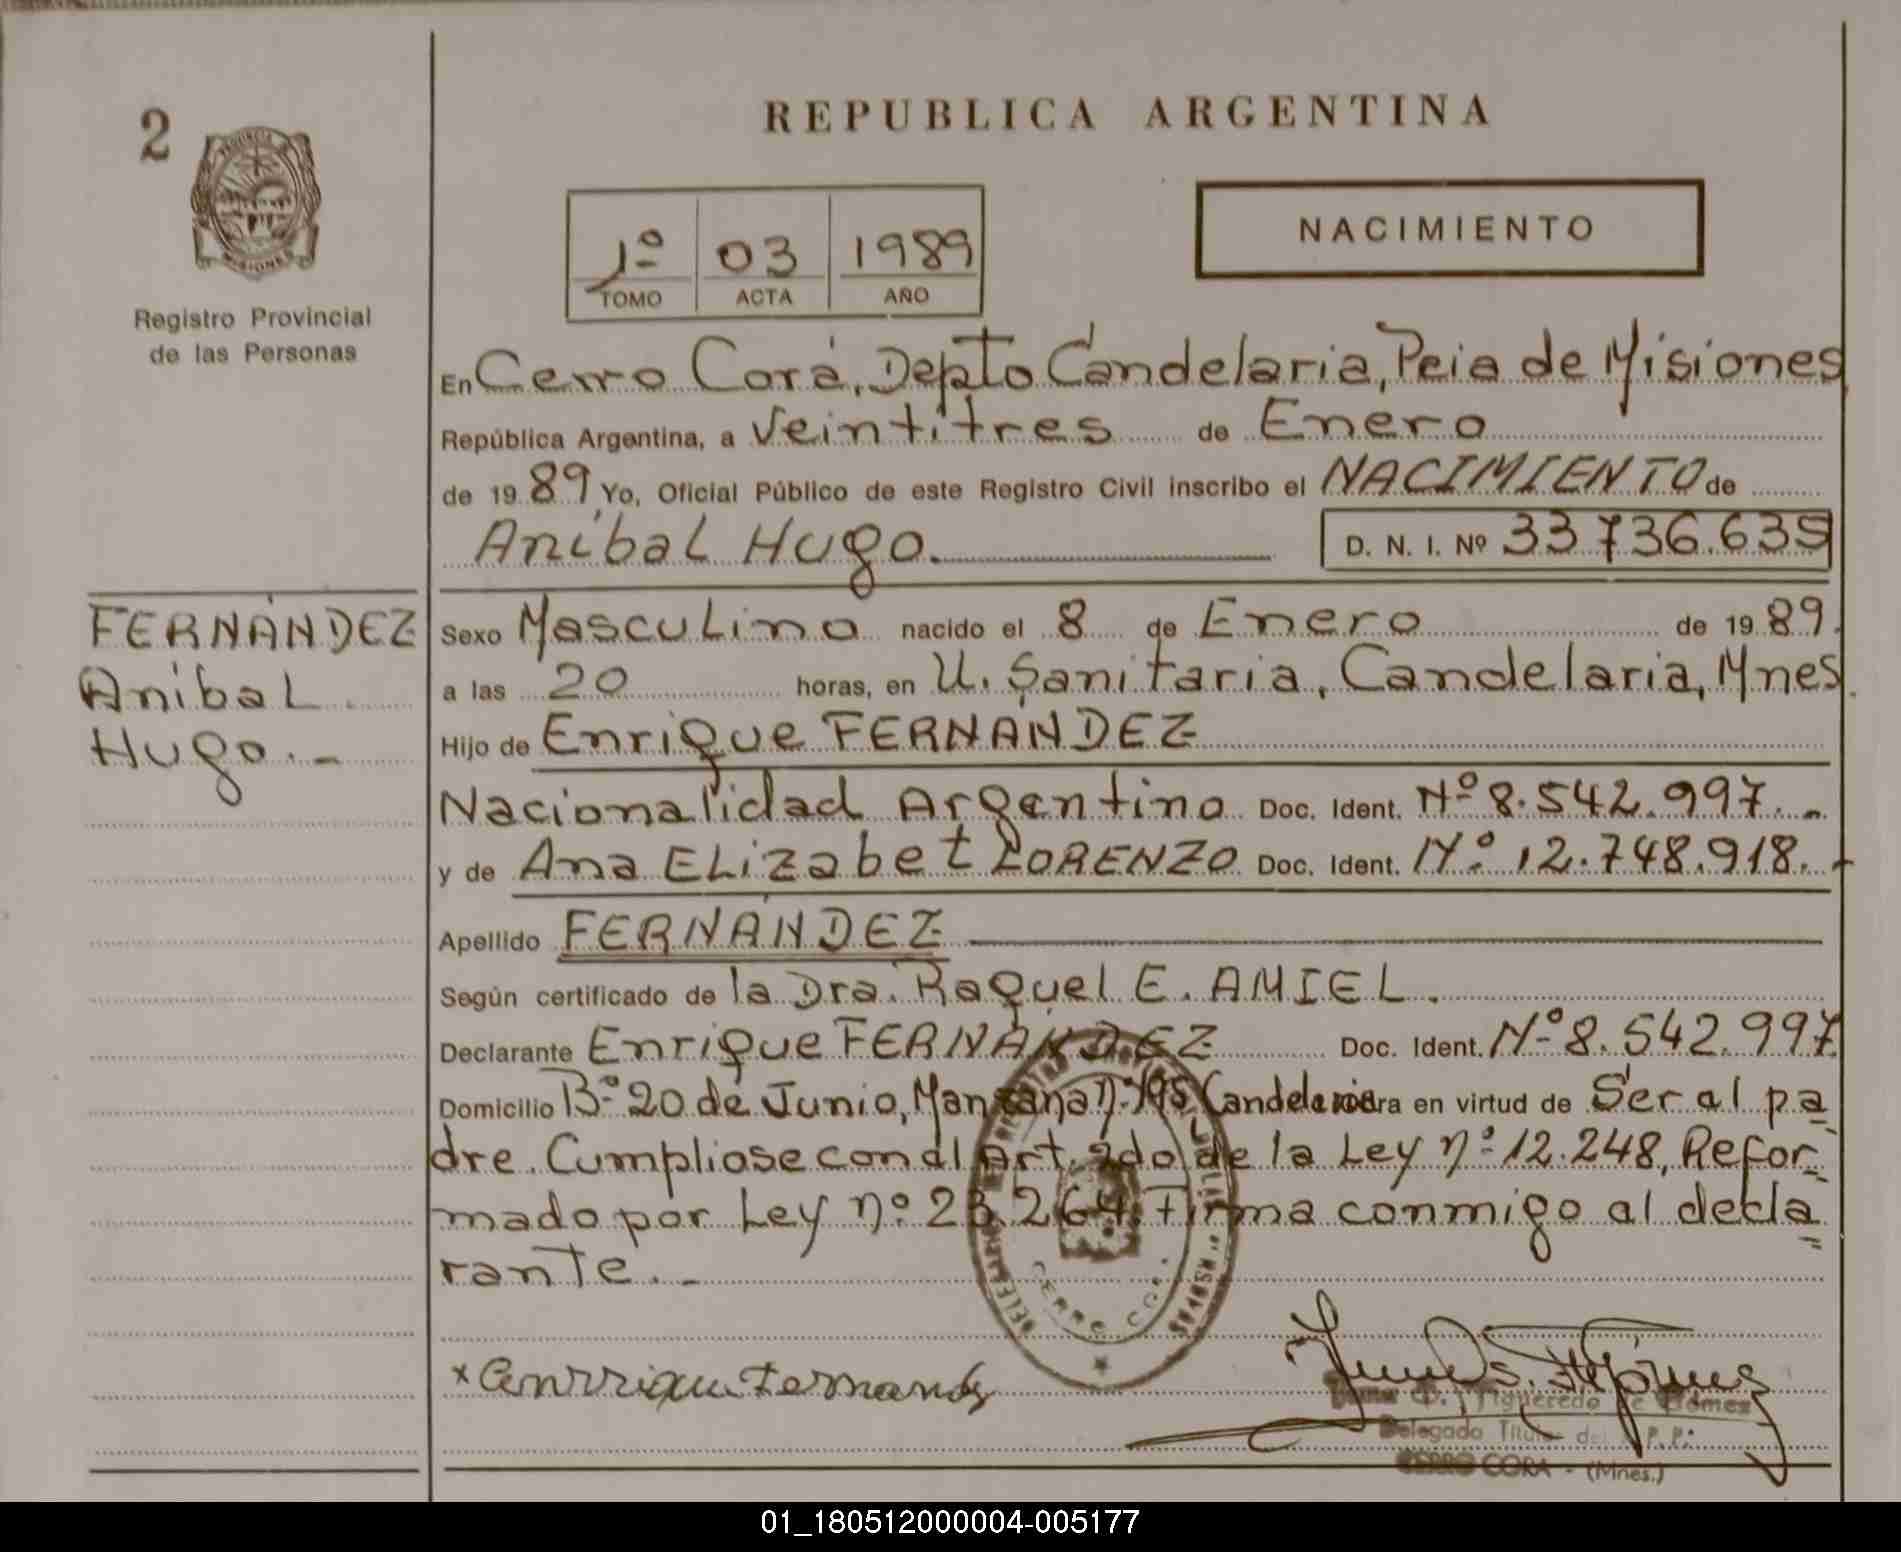 2
REPUBLICA ARGENTINA
PROVINCIA
MISIONES
Registro Provincial
de las Personas
1º 03 1989
TOMO ACTA AÑO
NACIMIENTO
En Cerro Corá, Depto Candelaria, Pcia de Misiones
República Argentina, a Veintitres de Enero
de 1989 Yo, Oficial Público de este Registro Civil inscribo el NACIMIENTO de
Aníbal Hugo.
D. N. I. Nº 33736.635
FERNÁNDEZ
Aníbal
Hugo.-
Sexo Masculino nacido el 8 de Enero de 1989.
a las 20 horas, en U. Sanitaria, Candelaria, Mnes.
Hijo de Enrique FERNÁNDEZ
Nacionalidad Argentino Doc. Ident. Nº 8.542.997.-
y de Ana ELizabet LORENZO Doc. Ident. Nº 12.748.918.-
Apellido FERNÁNDEZ
Según certificado de la Dra. Raquel E. AMIEL.
Declarante Enrique FERNÁNDEZ Doc. Ident. Nº 8.542.997
Domicilio Bº 20 de Junio, Manzana nº 195 Candelaria en virtud de Ser al pa
dre. Cumpliose con al Art. 2do de la Ley nº 12.248, Refor-
mado por Ley nº 23.264. Firma conmigo al decla
rante.-
CERRO CORA
x Enrrique Fernandez
Figueredo de Gómez
Delegado Titular del R.P.P.
CERRO CORA - (Mnes.)
01_180512000004-005177